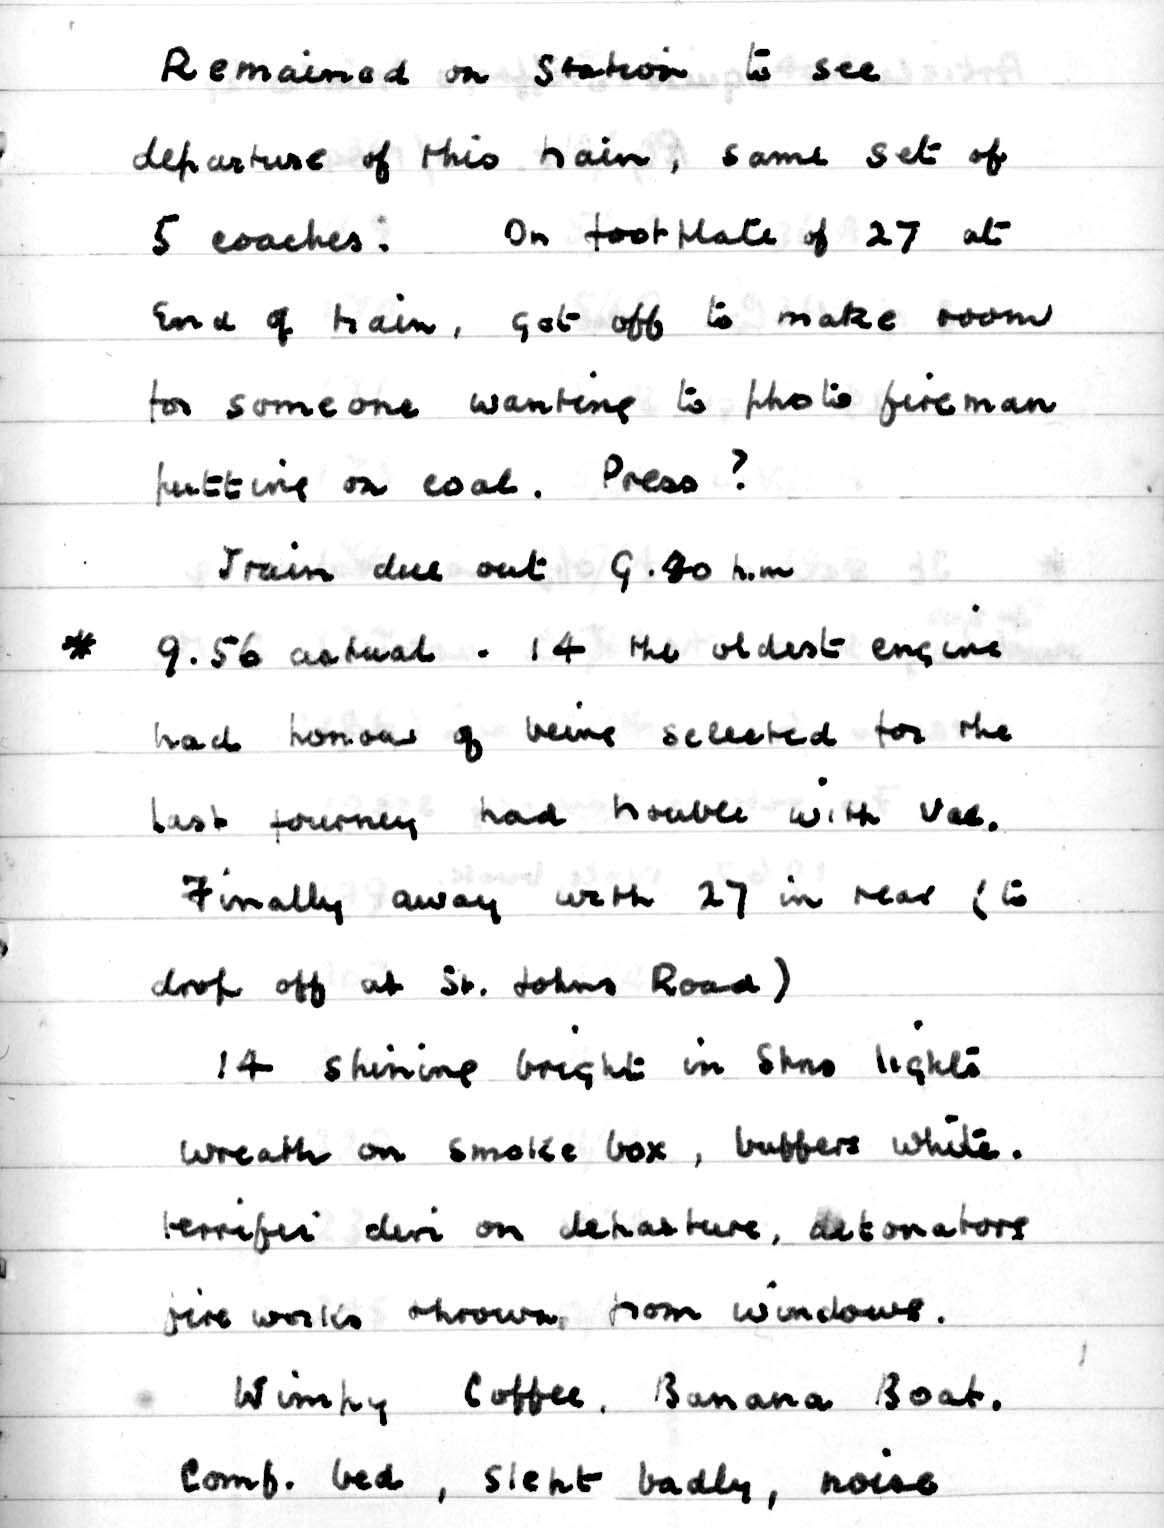 Remained on Station to see
departure of this train, same set of
5 coaches. On footplate of 27 at
End of train, got off to make room
for someone wanting to photo fireman
putting on coal. Press?
Train due out 9.40 p.m
* 9.56 actual. 14 the oldest engine
had honour of being selected for the
last journey had trouble with Vac.
Finally away with 27 in rear (to
drop off at St. Johns Road)
14 shining bright in Stns lights
wreath on smoke box, buffers white.
terrific din on departure, detonators
fire works thrown from windows.
Wimpy Coffee. Banana Boat.
Comf. bed, slept badly, noise